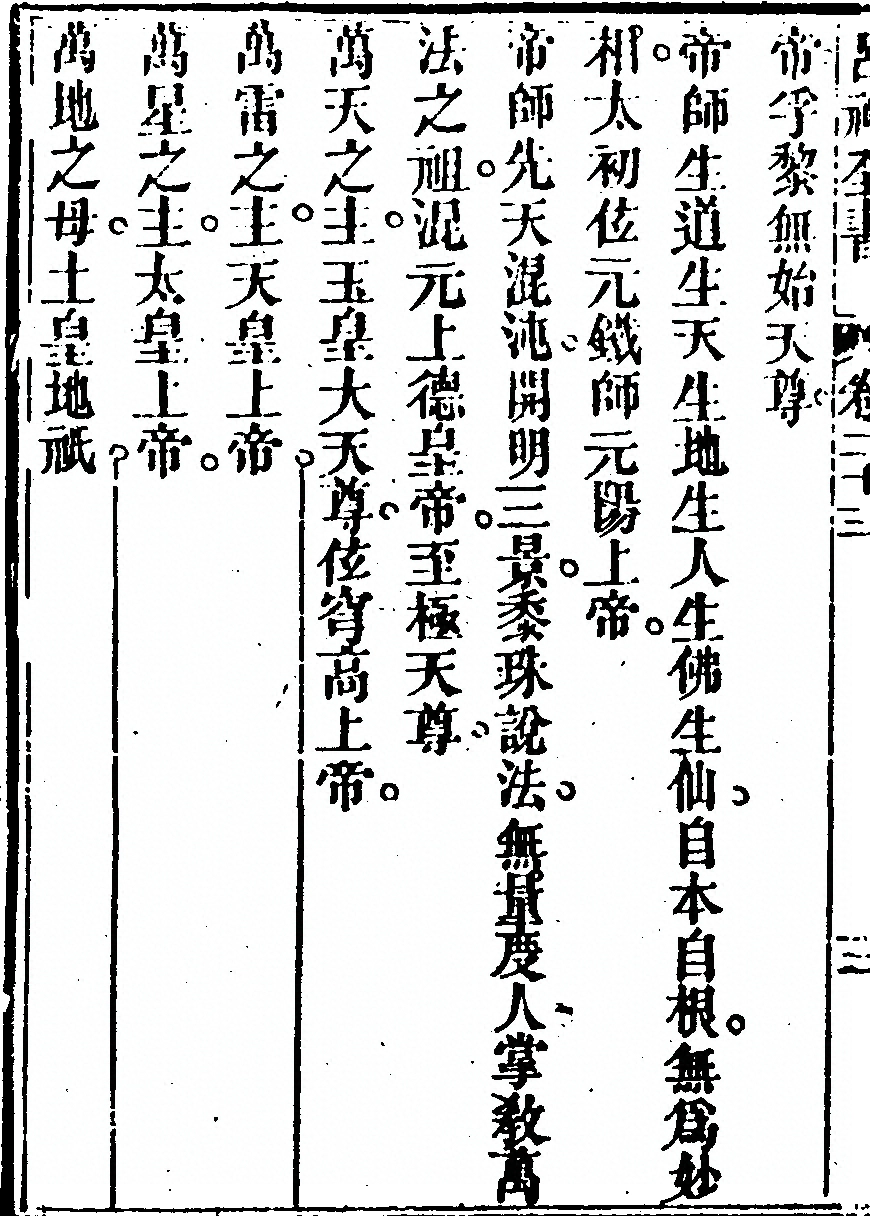 呂祖全書 卷二十三 二
帝孚黎無始天尊。
帝師生道生天生地生人生佛生仙。自本自根。無爲妙
相。太初位元鐵師元陽上帝。
帝師先天混沌。開明三景。黍珠說法。無量度人掌敎萬
法之祖。混元上德皇帝。至極天尊。
萬天之主。玉皇大天尊。位穹高上帝。
萬雷之主。天皇上帝。
萬星之主。太皇上帝。
萬地之母。土皇地祇。